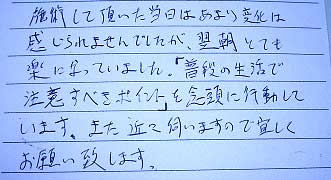 施術して頂いた当日はあまり変化は
感じられませんでしたが、翌朝とても
楽になっていました。「普段の生活で
注意すべきポイント」を念頭に行動して
います。また近々伺いますので宜しく
お願い致します。